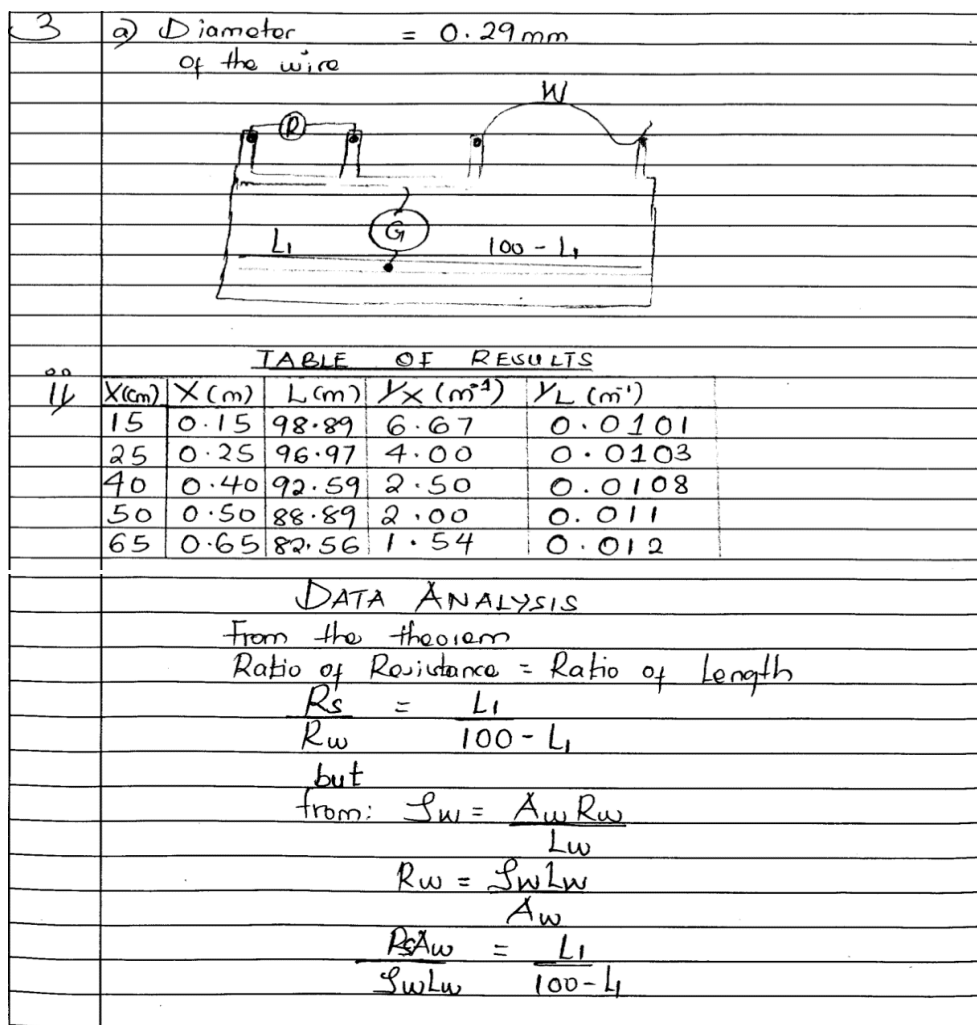 3 a) Diameter = 0.29mm
of the wire
R W
G
L₁ 100 - L₁
TABLE OF RESULTS
ii/
X(cm) X(m) L(m) 1/X (m⁻¹) 1/L (m⁻¹)
15 0.15 98.89 6.67 0.0101
25 0.25 96.97 4.00 0.0103
40 0.40 92.59 2.50 0.0108
50 0.50 88.89 2.00 0.011
65 0.65 82.56 1.54 0.012
DATA ANALYSIS
From the theorem
Ratio of Resistance = Ratio of Length
Rs/Rw = L₁/100 - L₁
but
from: ρw = AwRw/Lw
Rw = ρwLw/Aw
RsAw/ρwLw = L₁/100 - L₁